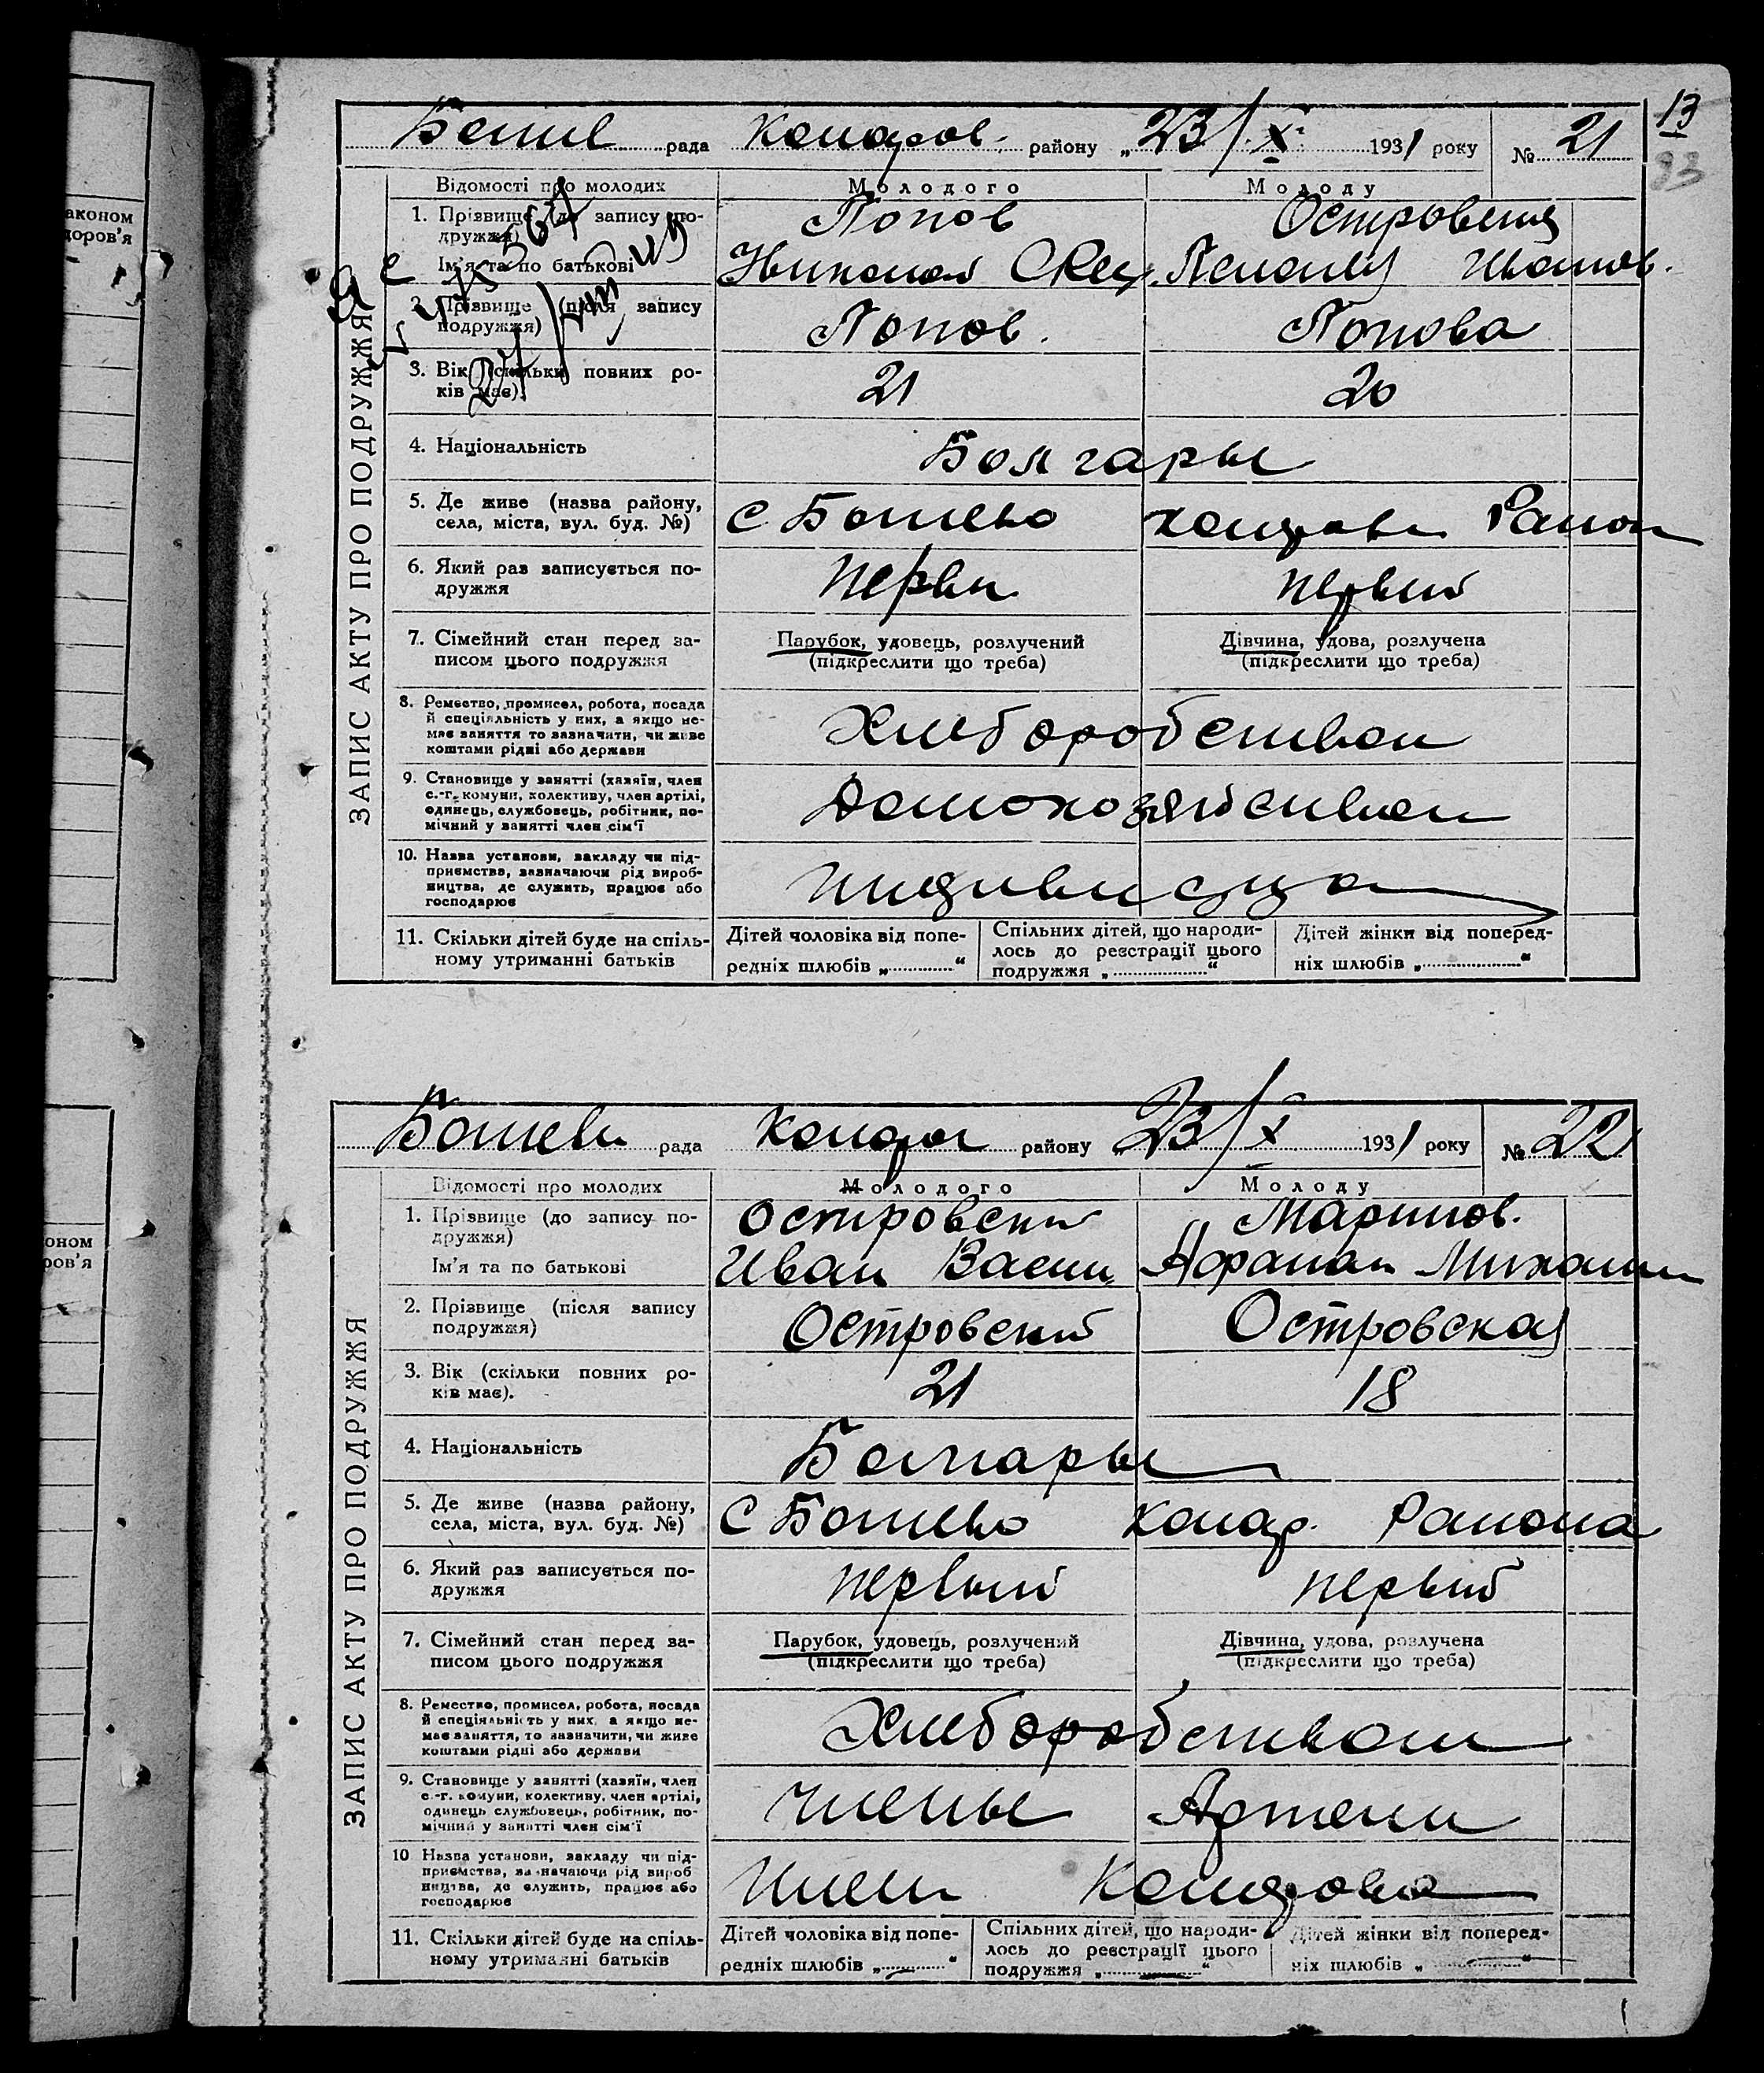 аконом
доров'я
оном
ров'я
13
93
Ботив рада Конаров. району „23/X 1931 року № 21
ЗАПИС АКТУ ПРО ПОДРУЖЖЯ
Відомості про молодих Молодого Молоду
1. Прізвище (до запису по- Попов
дружжя)
Ім'я та по батькові Николай Иванов.
2. Прізвище (після запису Попов. Попова
подружжя)
3. Вік (скільки повних ро- 21 20
ків має).
4. Національність Болгары
5. Де живе (назва району, с Ботьево Район
села, міста, вул. буд. №)
6. Який раз записується по- первы первый
дружжя
7. Сімейний стан перед за- Парубок, удовець, розлучений Дівчина, удова, розлучена
писом цього подружжя (підкреслити що треба) (підкреслити що треба)
8. Ремество, промисел, робота, посада Хлеборобством
й спеціяльність у них, а якщо не-
має заняття то зазначити, чи живе
коштами рідні або держави
9. Становище у занятті (хазяїн, член Домохозяйством
с.-г. комуни, колективу, член артілі,
одинець, службовець, робітник, по-
мічний у занятті член сім'ї
10. Назва установи, закладу чи під-
приємства, зазначаючи рід вироб-
ництва, де служить, працює або
господарює
11. Скільки дітей буде на спіль- Дітей чоловіка від попе- Спільних дітей, що народи- Дітей жінки від поперед-
ному утриманні батьків редніх шлюбів „ “ лось до реєстрації цього ніх шлюбів „ “
подружжя „ “
Ботьев рада Конар району 23/X 1931 року № 22
ЗАПИС АКТУ ПРО ПОДРУЖЖЯ
Відомості про молодих Молодого Молоду
1. Прізвище (до запису по- Островски Маринов.
дружжя)
Ім'я та по батькові Иван Васил. Михаил
2. Прізвище (після запису Островский Островская
подружжя)
3. Вік (скільки повних ро- 21 18
ків має).
4. Національність Болгары
5. Де живе (назва району, с Ботьево Конар. Района
села, міста, вул. буд. №)
6. Який раз записується по- первый первый
дружжя
7. Сімейний стан перед за- Парубок, удовець, розлучений Дівчина, удова, розлучена
писом цього подружжя (підкреслити що треба) (підкреслити що треба)
8. Ремество, промисел, робота, посада Хлеборобством
й спеціяльність у них, а якщо не-
має заняття, то зазначити, чи живе
коштами рідні або держави
9. Становище у занятті (хазяїн, член Члены Артели
с.-г. комуни, колективу, член артілі,
одинець службовець, робітник, по-
мічний у занятті член сім'ї
10 Назва установи, закладу чи під-
приємства, зазначаючи рід вироб
ництва, де служить, працює або
господарює
11. Скільки дітей буде на спіль- Дітей чоловіка від попе- Спільних дітей, що народи- Дітей жінки від поперед-
ному утриманні батьків редніх шлюбів „ “ лось до реєстрації цього ніх шлюбів „ “
подружжя „ “